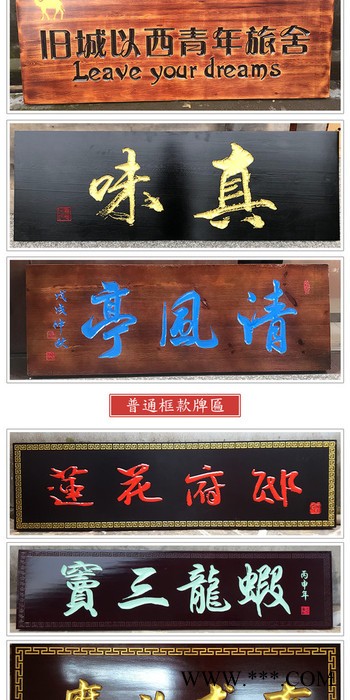 旧城以西青年旅舍
Leave your dreams
真味
清風亭
戊戌仲秋
普通框款牌匾
蓮花府邸
竇三龍蝦
丙申年
WWW.***.COM